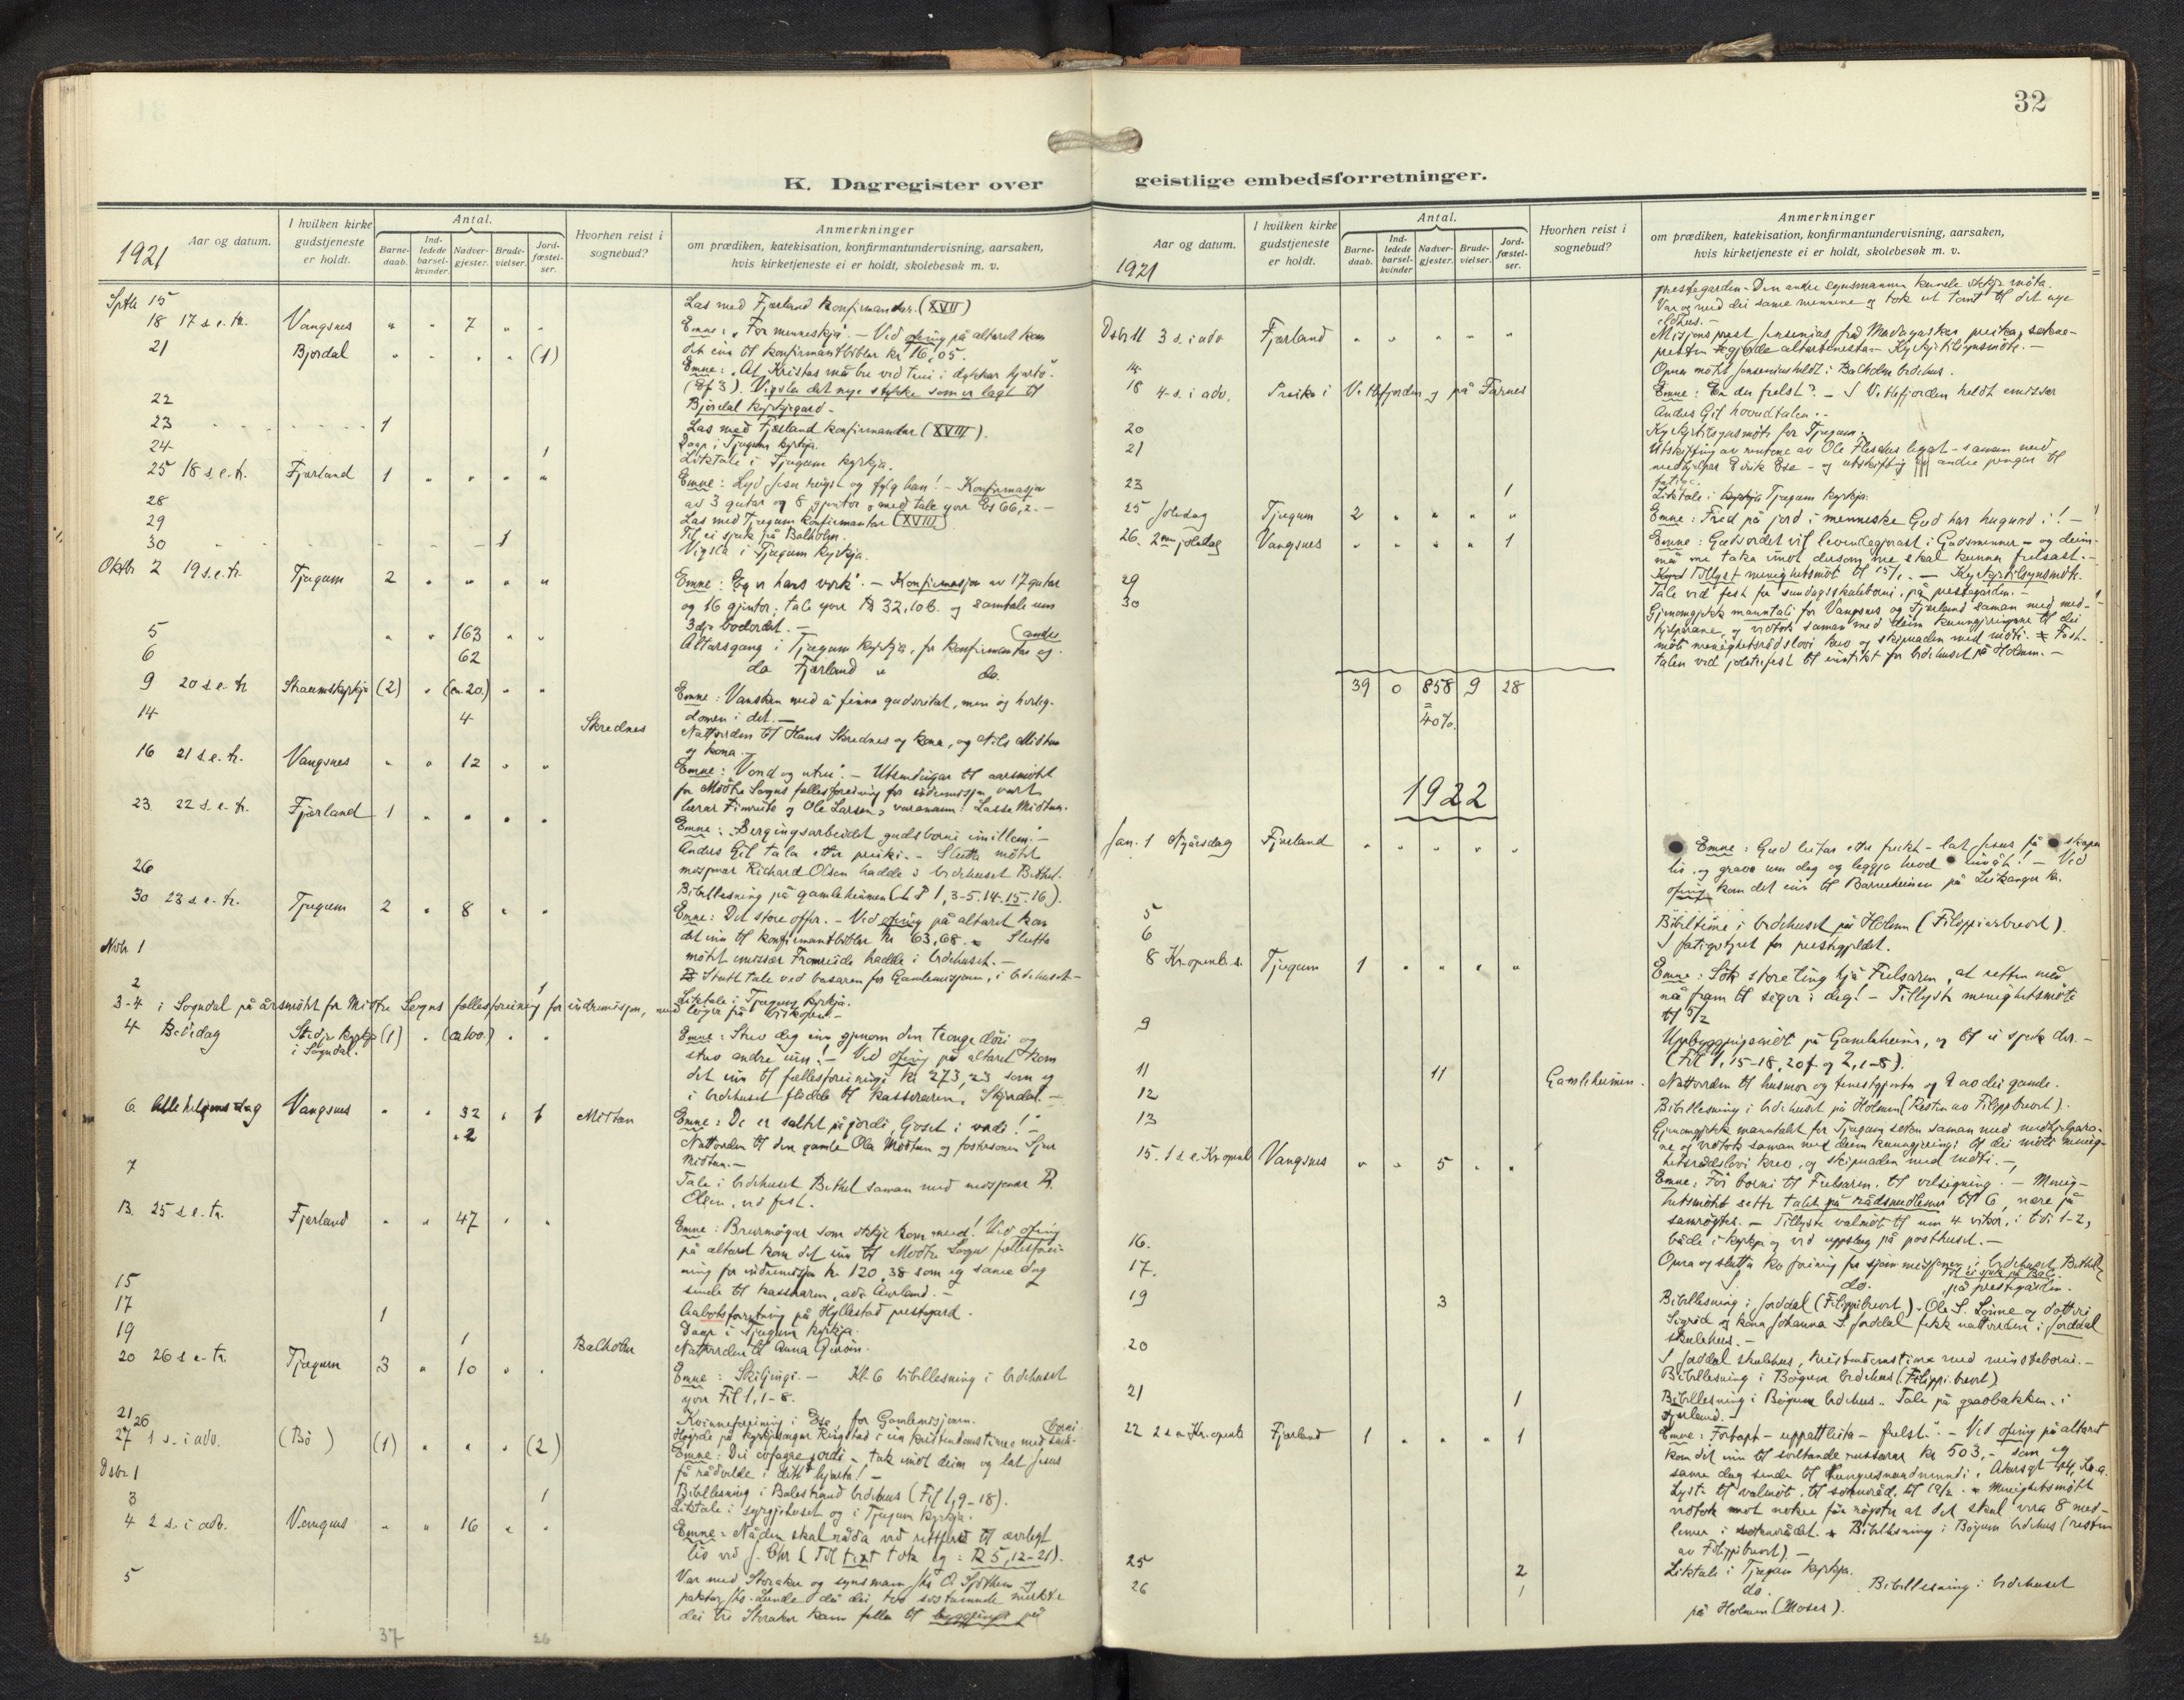 32
K. Dagregister over geistlige embedsforretninger.
1921
Aar og datum.
I hvilken kirke gudstjeneste er holdt.
Antal.
Barne-daab.
Ind-ledede barsel-kvinder.
Nadver-gjester.
Brude-vielser.
Jord-fæstel-ser.
Hvorhen reist i sognebud?
Anmerkninger
om prædiken, katekisation, konfirmantundervisning, aarsaken,
hvis kirketjeneste ei er holdt, skolebesøk m. v.
Sptb 15 Las med Fjærland konfirmandar. (XVII)
18 17 s. e. tr. Vangsnes " " 7 " " Emne: "Før menneskja". – Ved ofring på altaret kom
det inn til konfirmantbiblar kr 16,05.
21 Bjordal " " " " (1) Emne: "At Kristus må bu ved trui i dykkar hjarto".
(Ef 3). Vigsla det nye stykke som er lagt til
Bjordal kyrkjegard –
22 Las med Fjærland konfirmandar (XVIII).
23 1 Daap i Tjugum kyrkja.
24 1 Liktale i Tjugum kyrkja.
25 18 s. e. tr. Fjærland 1 " " " " Emne: Lyd Jesu røyst og fylg han! – Konfirmasjon
av 3 gutar og 8 gjentor med tale yver Es 66,2. –
28 Las med Tjugum konfirmantar (XVIII)
29 Til ei sjuk på Balholm.
30 1 Vigsla i Tjugum kyrkja.
Oktbr 2 19 s. e. tr. Tjugum 2 " " " " Emne: "Eg er hans verk". – Konfirmasjon av 17 gutar
og 16 gjentor; tale yver Ps 32,10b. og samtale um
3dje bodordet. –
5 " " 163 " " Altarsgang i Tjugum kyrkja, for konfirmantar og andre
6 62 do Fjærland " do.
9 20 s. e. tr Straumskyrkja (2) " (ca. 20.) " " Emne: Vansken med å finna gudsriket, men òg herleg-
domen i det. –
14 4 Skrednes Nattverden til Hans Skrednes og kona, og Nils Midtun
og kona.
16 21 s. e. tr. Vangsnes " " 12 " " Emne: "Vond og utru". – Utsendingar til aarsmötet
for Midtre Sogns fellesforeining for indremisjon vart
lærar Fimreite og Ole Larsen, varamann: Lasse Midtun.
23 22 s. e. tr. Fjærland 1 " " " " Emne: "Bergingsarbeidet gudsborni imillem". –
Anders Gil tala etter preiki. – Slutta mötet
misjonær Richard Olsen hadde i bedehuset Bethel.
26 Bibellesning på gamleheimen (1 P 1, 3-5. 14-15. 16).
30 23 s. e. tr. Tjugum 2 " 8 " " Emne: Det store offer. – Ved ofring på altaret kom
det inn til konfirmantbiblar kr 63,68. – Slutta
mötet emissær Fromreide hadde i bedehuset. –
Novbr 1 Stutt tale ved basaren for Gamlemisjonen, i bedehuset –
2 1 Liktale i Tjugum kyrkja.
3-4 i Sogndal på årsmötet for Midtre Sogns fellesforeining for indremisjon,
4 Bededag Stedje kyrkja i Sogndal. (1) " (ca 100.) " " Emne: Strev deg inn gjenom den tronge döri og
strev andre inn! – Ved ofring på altaret kom
det inn til fællesforeiningi kr 273,23 som eg
i bedehuset flidde til kasseraren, Skjerdal. –
6. Allehelgensdag Vangsnes " " 32 " 1 Midtun Emne: "De er saltet på jordi, ljoset i verdi!" –
2 Nattverden til den gamle Ola Midtun og fostersonen Sjur
Midtun. –
7 Tale i bedehuset Bethel saman med misjonær R.
Olsen, ved fest.
13. 25 s. e. tr. Fjærland " " 47 " " Emne: Brurmöyar som ikkje kom med! Ved ofring
på altaret kom det inn til Midtre Sogns fællesforei-
ning for indremisjon kr 120,38 som eg same dag
sende til kasseraren, adr. Aurland. –
15 Aabotsforretning på Hyllestad prestegard.
17 1 Daap i Tjugum kyrkja.
19 1 Balholm Nattverden til Anna
20 26 s. e. tr. Tjugum 3 " 10 " " Emne: Skiljingi. – Kl. 6 bibellesning i bedehuset
yver Fil 1, 1-8.
21 Kvinneforeining i Ese, for Gamlemisjonen.
26 Höyrde på kyrkjesongar Ringstad i ein kristendomstime med
27 1 s. i adv. (Bö) (1) " " " (2) Emne: Dei – tak imot deim og lat Jesus
få rådvelde i ditt hjarta! –
Dsbr. 1 Bibellesning i Balestrand bedehus (Fil 1, 9-18).
3 1 Liktale i syrgjehuset og i Tjugum kyrkja.
4 2 s. i adv. Vangsnes " " 16 " " Emne: Nåden skal råda ved rettferd til ævelegt
liv ved J. Chr (Til text tok eg: R 5, 12-21).
5 Var med Storaker og synsmann
dei tre Storaker kann fella til bygginga på
37 26
1921
Aar og datum.
I hvilken kirke gudstjeneste er holdt.
Antal.
Barne-daab.
Ind-ledede barsel-kvinder
Nadver-gjester.
Brude-vielser.
Jord-fæstel-ser.
Hvorhen reist i sognebud?
Anmerkninger
om prædiken, katekisation, konfirmantundervisning, aarsaken,
hvis kirketjeneste ei er holdt, skolebesøk m. v.
prestegarden. – Den andre synsmannen kunde ikkje möta.
Var og med dei same mennene og tok ut tomt til det nye
eldhus. –
Dsbr 11 3 s. i adv Fjærland " " " " " Misjonsprest Jensenius frå Madagaskar preika, sokne-
presten gjorde altartenesta – Kyrkjetilsynsmöte. –
14 Opna mötet Jensenius heldt i Balholm bedehus.
18 4. s. i adv. Preika i Vetlefjorden og på Farnes Emne: Er du frelst? – I Vetlefjorden heldt emissær
Anders Gil hovudtalen. –
20 Kyrkjetilsynsmöte for Tjugum.
21 Utskifting av rentene av Ole Flesches legat – saman med
medhjelpar Eirik Ese – og utskifting av andre pengar til
fatige.
23 1 Liktale i Tjugum kyrkja.
25 Joledag Tjugum 2 " " " " Emne: Fred på jord i menneske Gud har hugnad i! –
26. 2nen joledag Vangsnes " " " " 1 Emne: Gudsordet vil levendegjerast i Gudsmenn – og deim
må me taka imot dersom me skal kunna frelsast. –
Tillyst menighetsmöt til 15/1. – Kyrkjetilsynsmöte.
29 Tale ved fest for sundagsskuleborni, på prestegarden. –
30 Gjenomgjekk manntali for Vangsnes og Fjærland saman med med-
hjelparane, og vedtok saman med deim kunngjeringane til dei
möti menighetsrådslovi krev og skipnaden med möti. – Fest-
talen ved joletrefest til inntekt for bedehuset på Holmen. –
39 0 858 9 28
= 40%.
1922
Jan. 1 Nyårsdag Fjærland " " " " " Emne: Gud leitar etter frukt – lat Jesus få skapa
liv, og grava um deg og leggja hevd innåt! – Ved
ofring kom det inn til Barneheimen på Leikanger kr.
5 Bibeltime i bedehuset på Holmen (Filippiarbrevet).
6 I fatigstyret for prestegjeldet.
8 Kr. openb. s. Tjugum 1 " " " " Emne: Sök store ting hjå Frelsaren, at retten må
nå fram til siger i deg! – Tillyste menighetsmöte
til 5/2
9 Uppbyggingsmöt på Gamleheimen, og til ei sjuk der. –
(Fil 1, 15-18, 20f og 2, 1-8).
11 11 Gamleheimen. Nattverden til husmor og tenestgjenta og 9 av dei gamle.
12 Bibellesning i bedehuset på Holmen (Resten av Filippibrevet).
13 Gjenomgjekk manntalet for Tjugum sokn saman med medhjelpara-
ne og vedtok saman med deim kunngjeringi til dei möti menig-
hetsrådslovi krev, og skipnaden med möti. –
15. 1 s. e. Kr. openb Vangsnes " " 5 " " Emne: För borni til Frelsaren, til velsigning. – Menig-
hetsmötet sette talet på rådsmedlemer til 6, nære på
samröystes. – Tillyste valmöt til um 4 vikor, i tidi 1-2,
både i kyrkja og ved uppslag på posthuset. –
16. Opna og slutta kv. foreining for sjömannsmisjonen i bedehuset Bethel
17. I do. på prestegarden. Til ei sjuk på Bale.
19 3 Bibellesning i Jordal (Filippibrevet). Ole S. Lönne og dotteri
Sigrid og kona Johanna S. Jordal fekk nattverden i Jordal
skulehus. –
20 I Jordal skulehus, kristendomstime med minsteborni. –
Bibellesning i Böyum bedehus (Filippibrevet)
21 1 Bibellesning i Böyum bedehus. Tale på gravbakken i
Fjærland. –
22 2 s. e. Kr. openb Fjærland 1 " " " 1 Emne: Fortapt – uppattleita – frelst". – Ved ofring på altaret
kom det inn til sveltande russarar kr 503,– som eg
same dag sende til
Lyste til valmöt til sokneråd til 19/2. – Menighetsmötet
vedtok mot nokre få röyster at det skal vera 8 med-
lemer i soknerådet. – Bibellesning i Böyum bedehus (resten
av Filippibrevet). –
25 2 Liktale i Tjugum kyrkja.
26 1 do. Bibellesning i bedehuset
på Holmen (Moses).